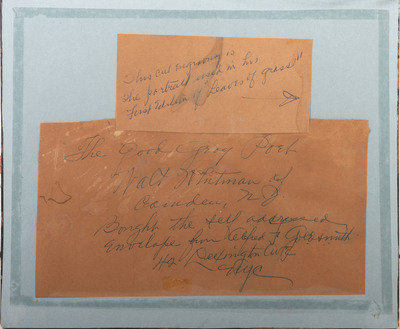 This cut engraving is
the portrait used in his
First Edition of "Leaves of grass"
The Good Gray Poet
Walt Whitman of
Camden, N.J.
Bought the self addressed
Envelope from Alfred F. Goldsmith
42 Lexington Ave
NYC